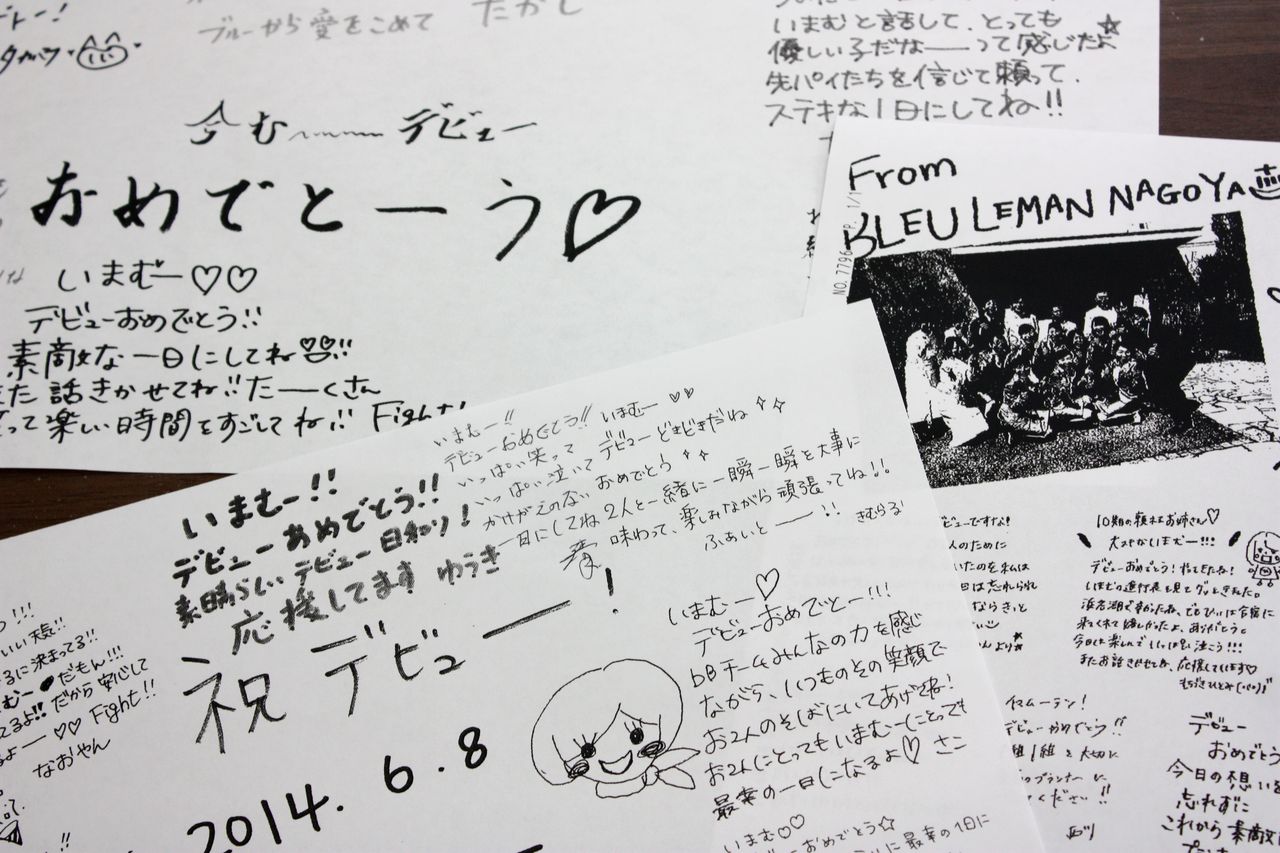 デトー!
ブルーから愛をこめて たかし
いまむと話して、とっても
優しい子だなーって感じたよ☆
先パイたちを信じて頼って、
ステキな1日にしてね!!
今む〰デビュー
おめでとーう♡
いまむー♡♡
デビューおめでとう!!
素敵な一日にしてね!!
た話きかせてね!!たーくさん
って楽しい時間をすごしてね!! Fight!
From
BLEU LEMAN NAGOYA
NO. 7796 P. 1/1
いまむー!!
デビューおめでとう!!
素晴らしいデビュー日和り!
応援してます ゆうき
いまむー!!
デビューおめでとう!!
いっぱい笑って
いっぱい泣いて
かけがえのない
一日にしてね
いまむー♡♡
デビューどきどきだね
おめでとう
2人と一緒に一瞬一瞬を大事に
味わって、楽しみながら頑張ってね!!
ふぁいとー!! きむらる
祝デビュー!
2014. 6. 8
いい天気!!
るに決まってる!!
むー だもん!!!
てるよ!! だから安心して
るよー♡♡ Fight!!
なおやん
いまむー♡
デビューおめでとー!!!
bBチームみんなの力を感じ
ながら、いつものその笑顔で
お2人のそばにいてあげてね!
お2人にとってもいまむーにとっても
最幸の一日になるよ♡ さこ
いまむ♡♡
デビューおめでとう☆
最幸の1日に
ビューですな!
人のために
いたのを私は
日は忘れられ
ならきっと
んより
デビューおめでとう!
今日は楽しんでいっぱい泣こう!!!
またお話きかせてね、応援しています♡
イマムーテン!
デビューおめでとう!!
組1組を大切に
のプランナーに
ください!!
西川
デビュー
おめでとう
今日の想いを
忘れずに
これから素敵な